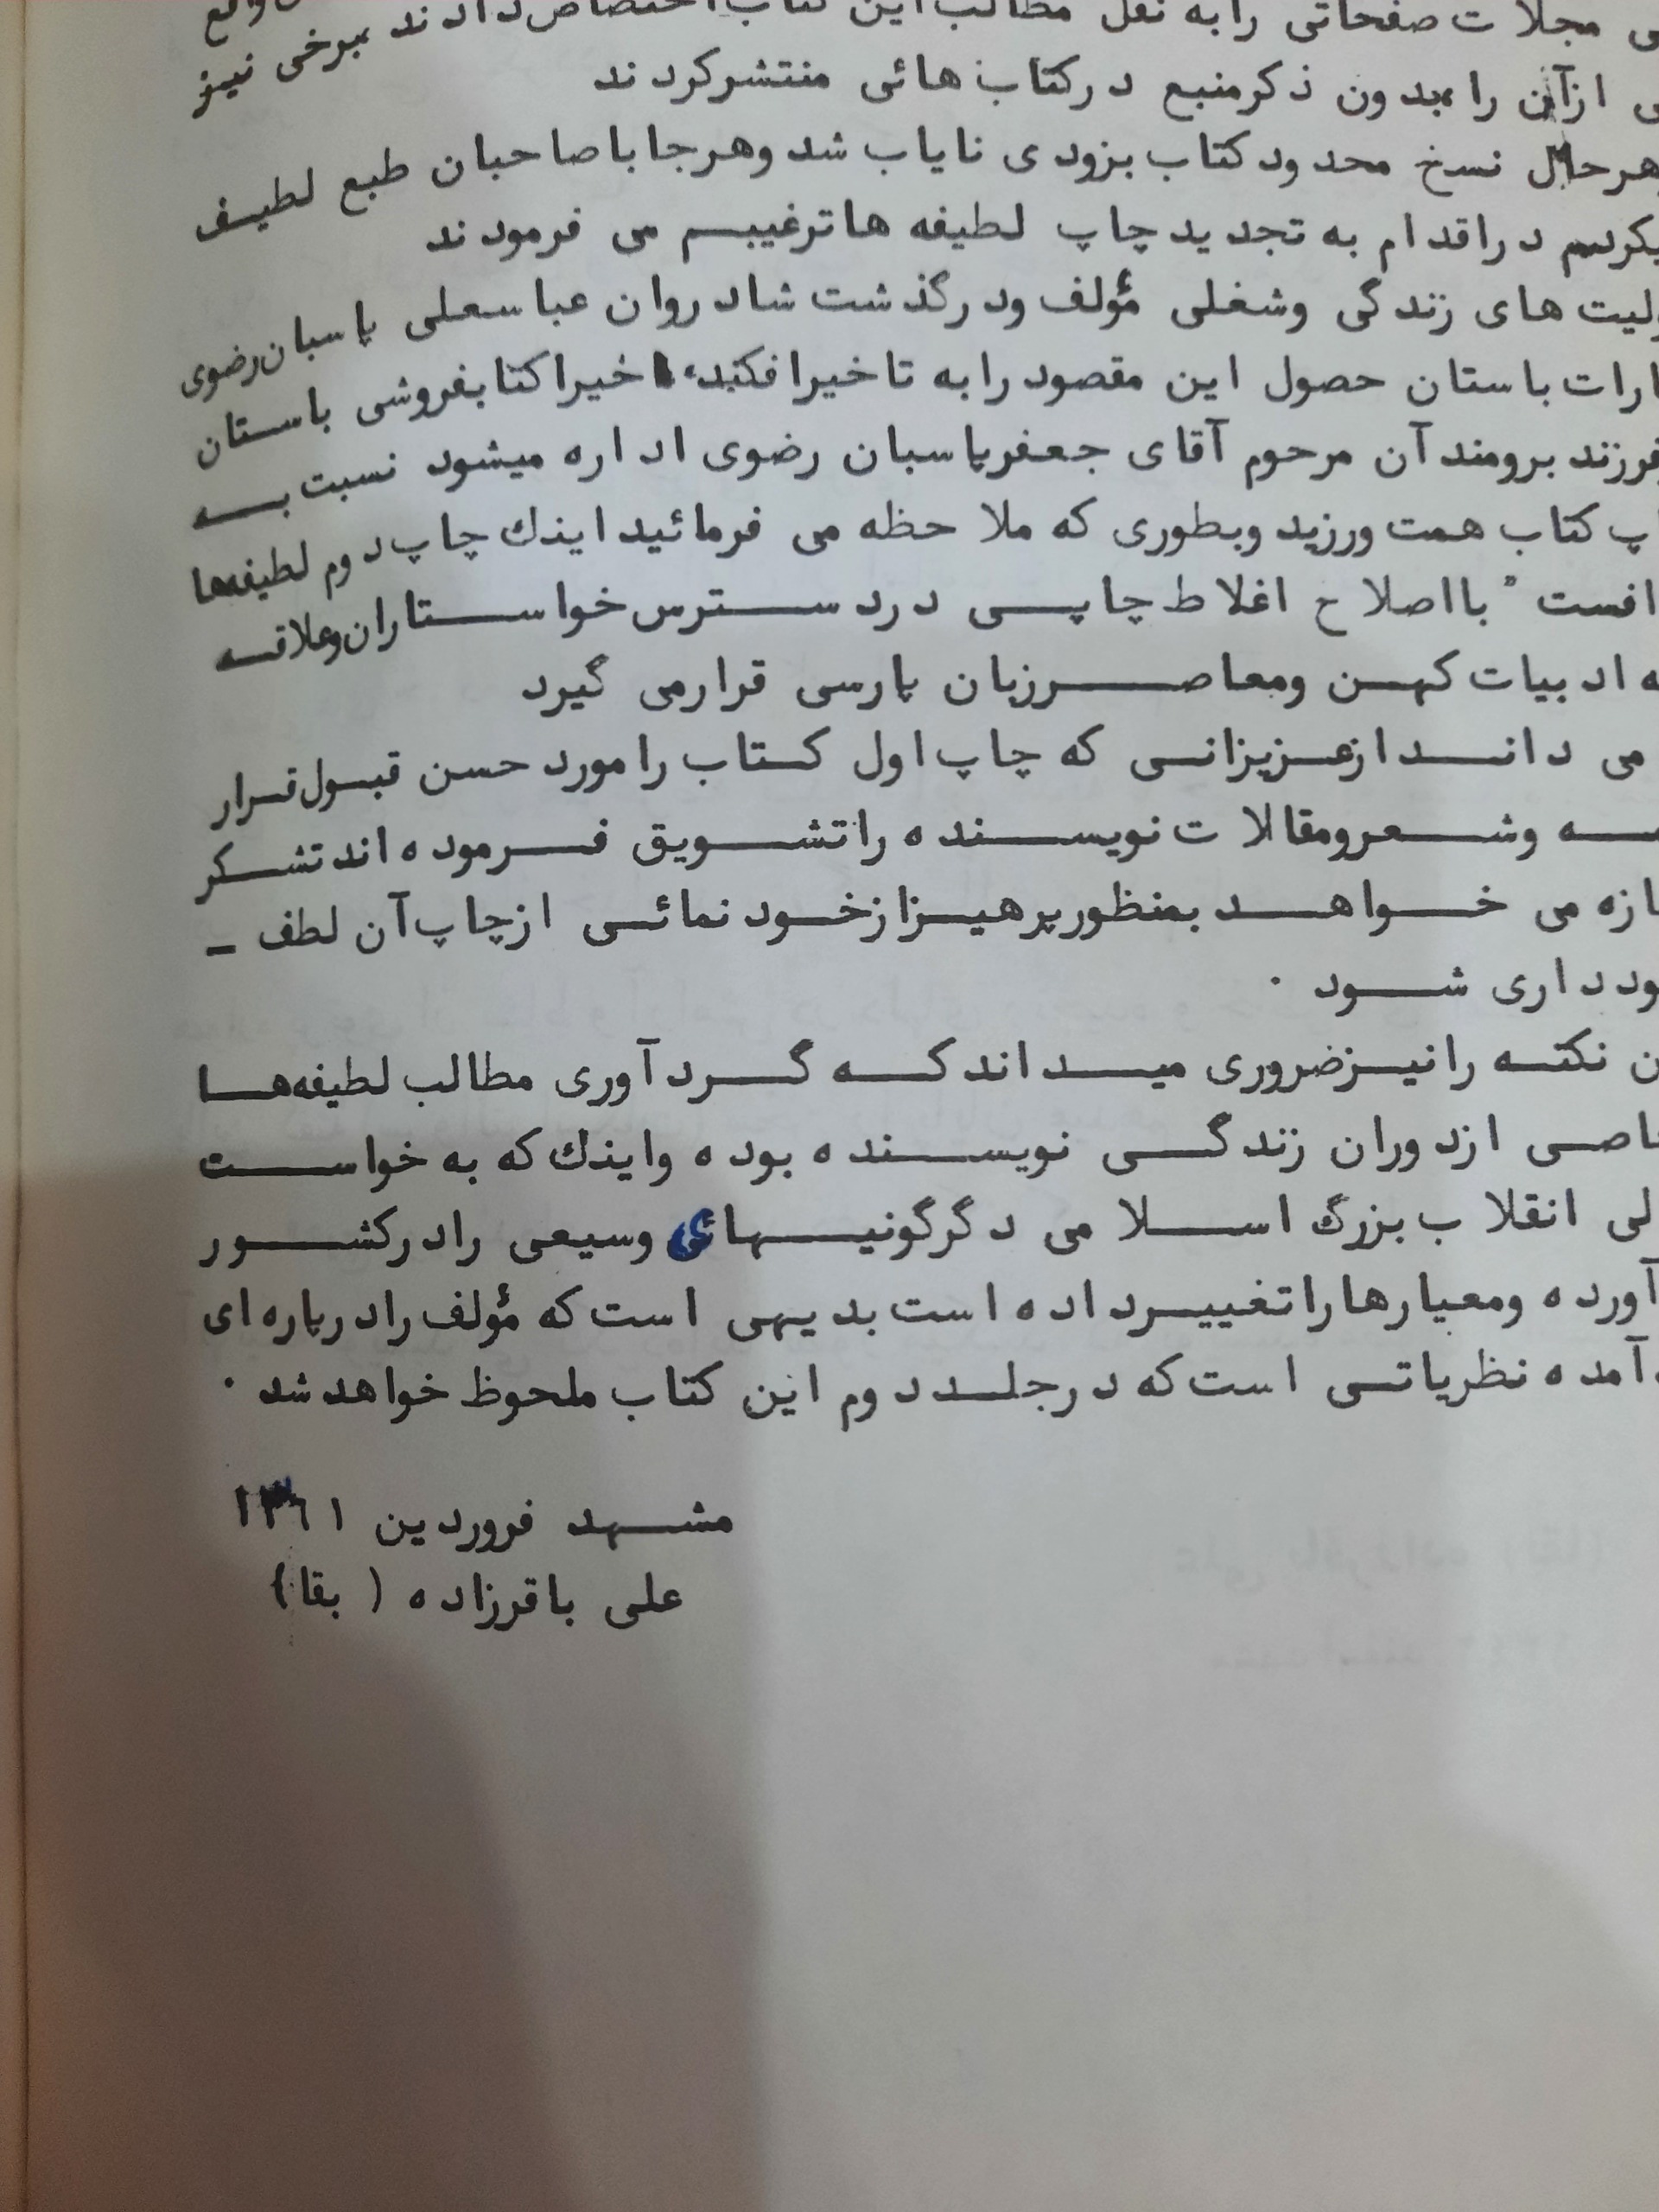 مجلات صفحاتی را به نقل مطالب این کتاب اختصاص دادند برخی نیز
از آن را بدون ذکر منبع در کتاب هائی منتشر کردند
هرحال نسخ محدود کتاب بزودی نایاب شد و هرجا با صاحبان طبع لطیف
در اقدام به تجدید چاپ لطیفه ها ترغیبم می فرمودند
لیت های زندگی و شغلی مؤلف و درگذشت شادروان عباسعلی پاسبان رضوی
ارات باستان حصول این مقصود را به تاخیر افکند، اخیرا کتابفروشی باستان
فرزند برومند آن مرحوم آقای جعفر پاسبان رضوی اداره میشود نسبت به
اپ کتاب همت ورزید و بطوری که ملاحظه می فرمائید اینك چاپ دوم لطیفه‌ها
افست " با اصلاح اغلاط چاپی در دسترس خواستاران و علاقه
ه ادبیات کهن و معاصر زبان پارسی قرار می گیرد
می داند از عزیزانی که چاپ اول کتاب را مورد حسن قبول قرار
ـه و شعر و مقالات نویسنده را تشویق فرموده اند تشکر
ازه می خواهد بمنظور پرهیز از خود نمائی از چاپ آن لطف -
ود داری شود .
ن نکته را نیز ضروری میداند که گرد آوری مطالب لطیفه‌ها
اصی از دوران زندگی نویسنده بوده و اینك که به خواست
لی انقلاب بزرگ اسلامی دگرگونیهای وسیعی را در کشور
آورده و معیارها را تغییر داده است بدیهی است که مؤلف را در پاره ای
آمده نظریاتی است که در جلد دوم این کتاب ملحوظ خواهد شد .
مشهد فروردین ۱۳۶۱
علی باقرزاده ( بقا )